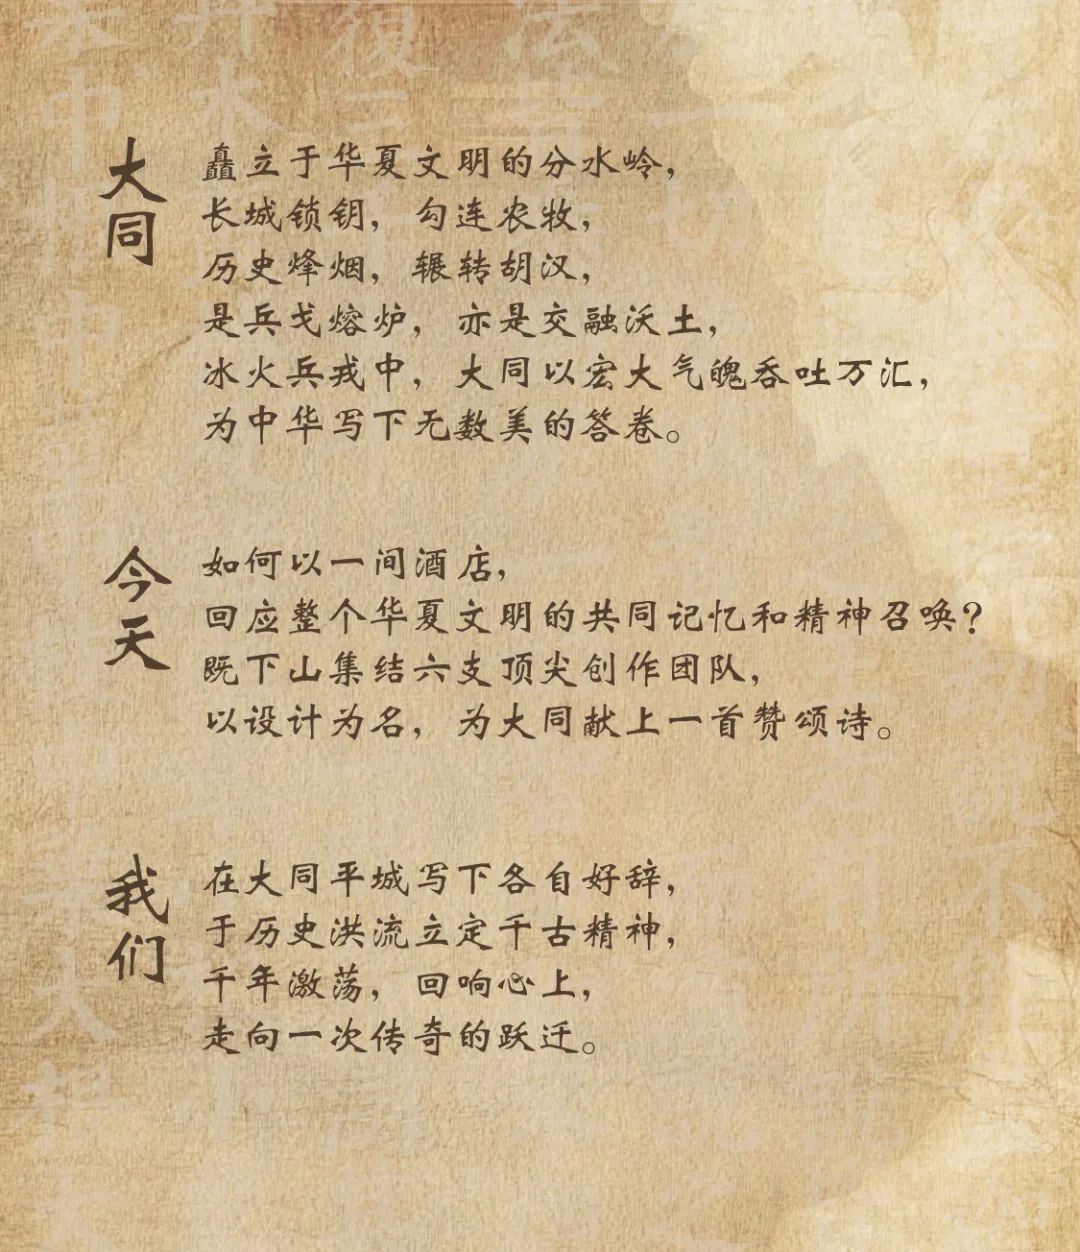 大同
矗立于华夏文明的分水岭，
长城锁钥，勾连农牧，
历史烽烟，辗转胡汉，
是兵戈熔炉，亦是交融沃土，
冰火兵戎中，大同以宏大气魄吞吐万汇，
为中华写下无数美的答卷。
今天
如何以一间酒店，
回应整个华夏文明的共同记忆和精神召唤？
既下山集结六支顶尖创作团队，
以设计为名，为大同献上一首赞颂诗。
我们
在大同平城写下各自好辞，
于历史洪流立定千古精神，
千年激荡，回响心上，
走向一次传奇的跃迁。